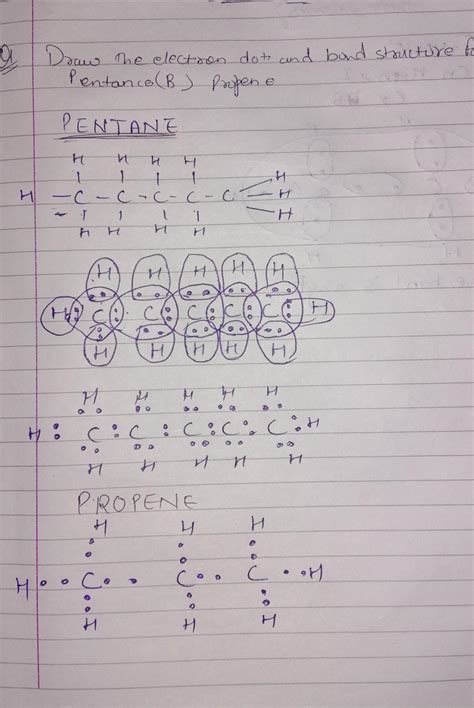 Q1 Draw the electron dot and bond structure fo
Pentance(B) Propene
PENTANE
H H H H
H - C - C - C - C - C - H
- H
- H
H H H H
H H H H H
H C C C C C H
H H H H H
H H H H H
H : C : C : C : C : C : H
H H H H H
PROPENE
H H H
H : C : C : C : H
H H H